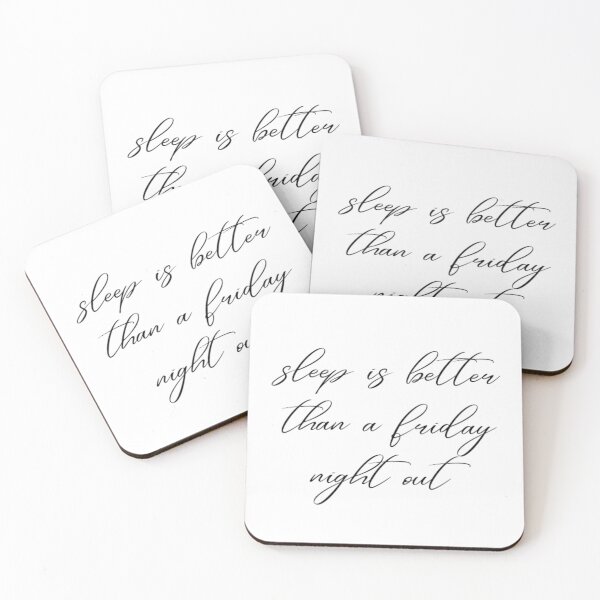 sleep is better
than a friday
sleep is better
than a friday
night out
sleep is better
than a friday
night out
sleep is better
than a friday
night out